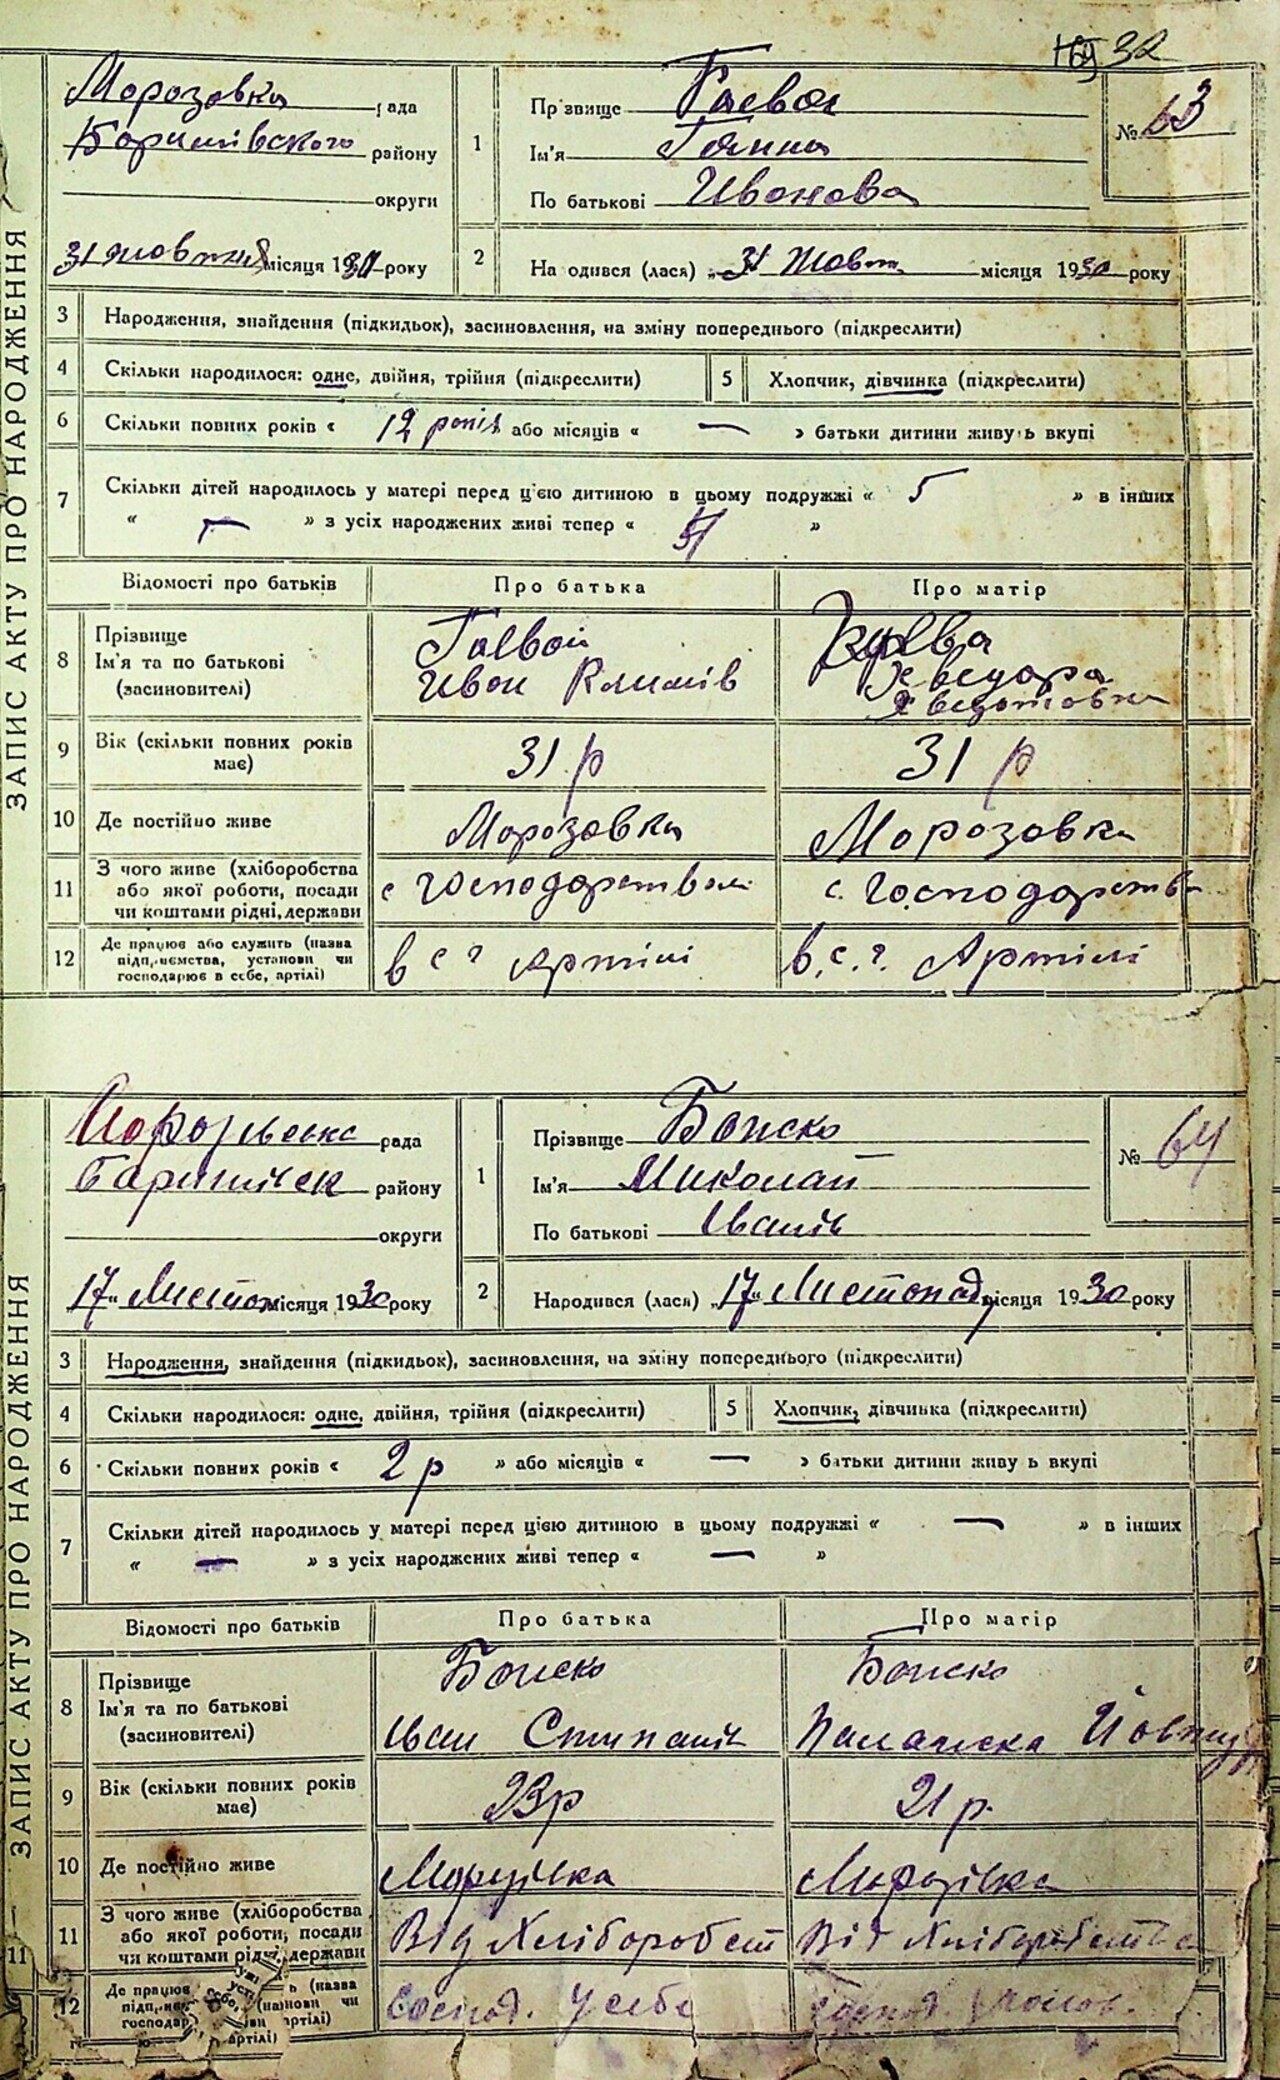 32
Морозовка рада
Боришівского району
округи
31 жовтня місяця 1930 року
1
Прізвище Гаєвая
Ім'я Ганна
По батькові Ивонова
№ 63
2
Народився (лася) „31 Жовт. місяця 1930 року
ЗАПИС АКТУ ПРО НАРОДЖЕННЯ
3 Народження, знайдення (підкидьок), засиновлення, на зміну попереднього (підкреслити)
4 Скільки народилося: одне, двійня, трійня (підкреслити)
5 Хлопчик, дівчинка (підкреслити)
6 Скільки повних років « 12 років » або місяців « — » батьки дитини живуть вкупі
7 Скільки дітей народилось у матері перед цією дитиною в цьому подружжі « 5 » в інших
« — » з усіх народжених живі тепер « »
Відомості про батьків Про батька Про матір
8 Прізвище
Ім'я та по батькові
(засиновителі)
Гаевой
Ивон Климів
Хведора
Хведотовна
9 Вік (скільки повних років має) 31 р 31 р
10 Де постійно живе Морозовка Морозовка
11 З чого живе (хліборобства
або якої роботи, посади
чи коштами рідні, держави
с господорством с. Господорств
12 Де працює або служить (назва
підприємства, установи чи
господарює в себе, артілі)
в с г артілі в. с. г. Артілі
рада
Баришівск району
округи
„17“ Листопа місяця 1930 року
1
Прізвище Божко
Ім'я Миколай
По батькові Іванів
№ 64
2
Народився (лася) „17“ Листопад місяця 1930 року
ЗАПИС АКТУ ПРО НАРОДЖЕННЯ
3 Народження, знайдення (підкидьок), засиновлення, на зміну попереднього (підкреслити)
4 Скільки народилося: одне, двійня, трійня (підкреслити)
5 Хлопчик, дівчинка (підкреслити)
6 Скільки повних років « 2 р » або місяців « — » батьки дитини живуть вкупі
7 Скільки дітей народилось у матері перед цією дитиною в цьому подружжі « — » в інших
« — » з усіх народжених живі тепер « — »
Відомості про батьків Про батька Про матір
8 Прізвище
Ім'я та по батькові
(засиновителі)
Божко Божко
Іван Стипанів Палажка
9 Вік (скільки повних років має) 23 р 21 р.
10 Де постійно живе Морозівка Морозівка
11 З чого живе (хліборобства
або якої роботи, посади
чи коштами рідні, держави
Від Хлібороб ст Від Хліборобства
12 Де працює (назва
чи
господар артілі)
Господ. у себе господ.
11